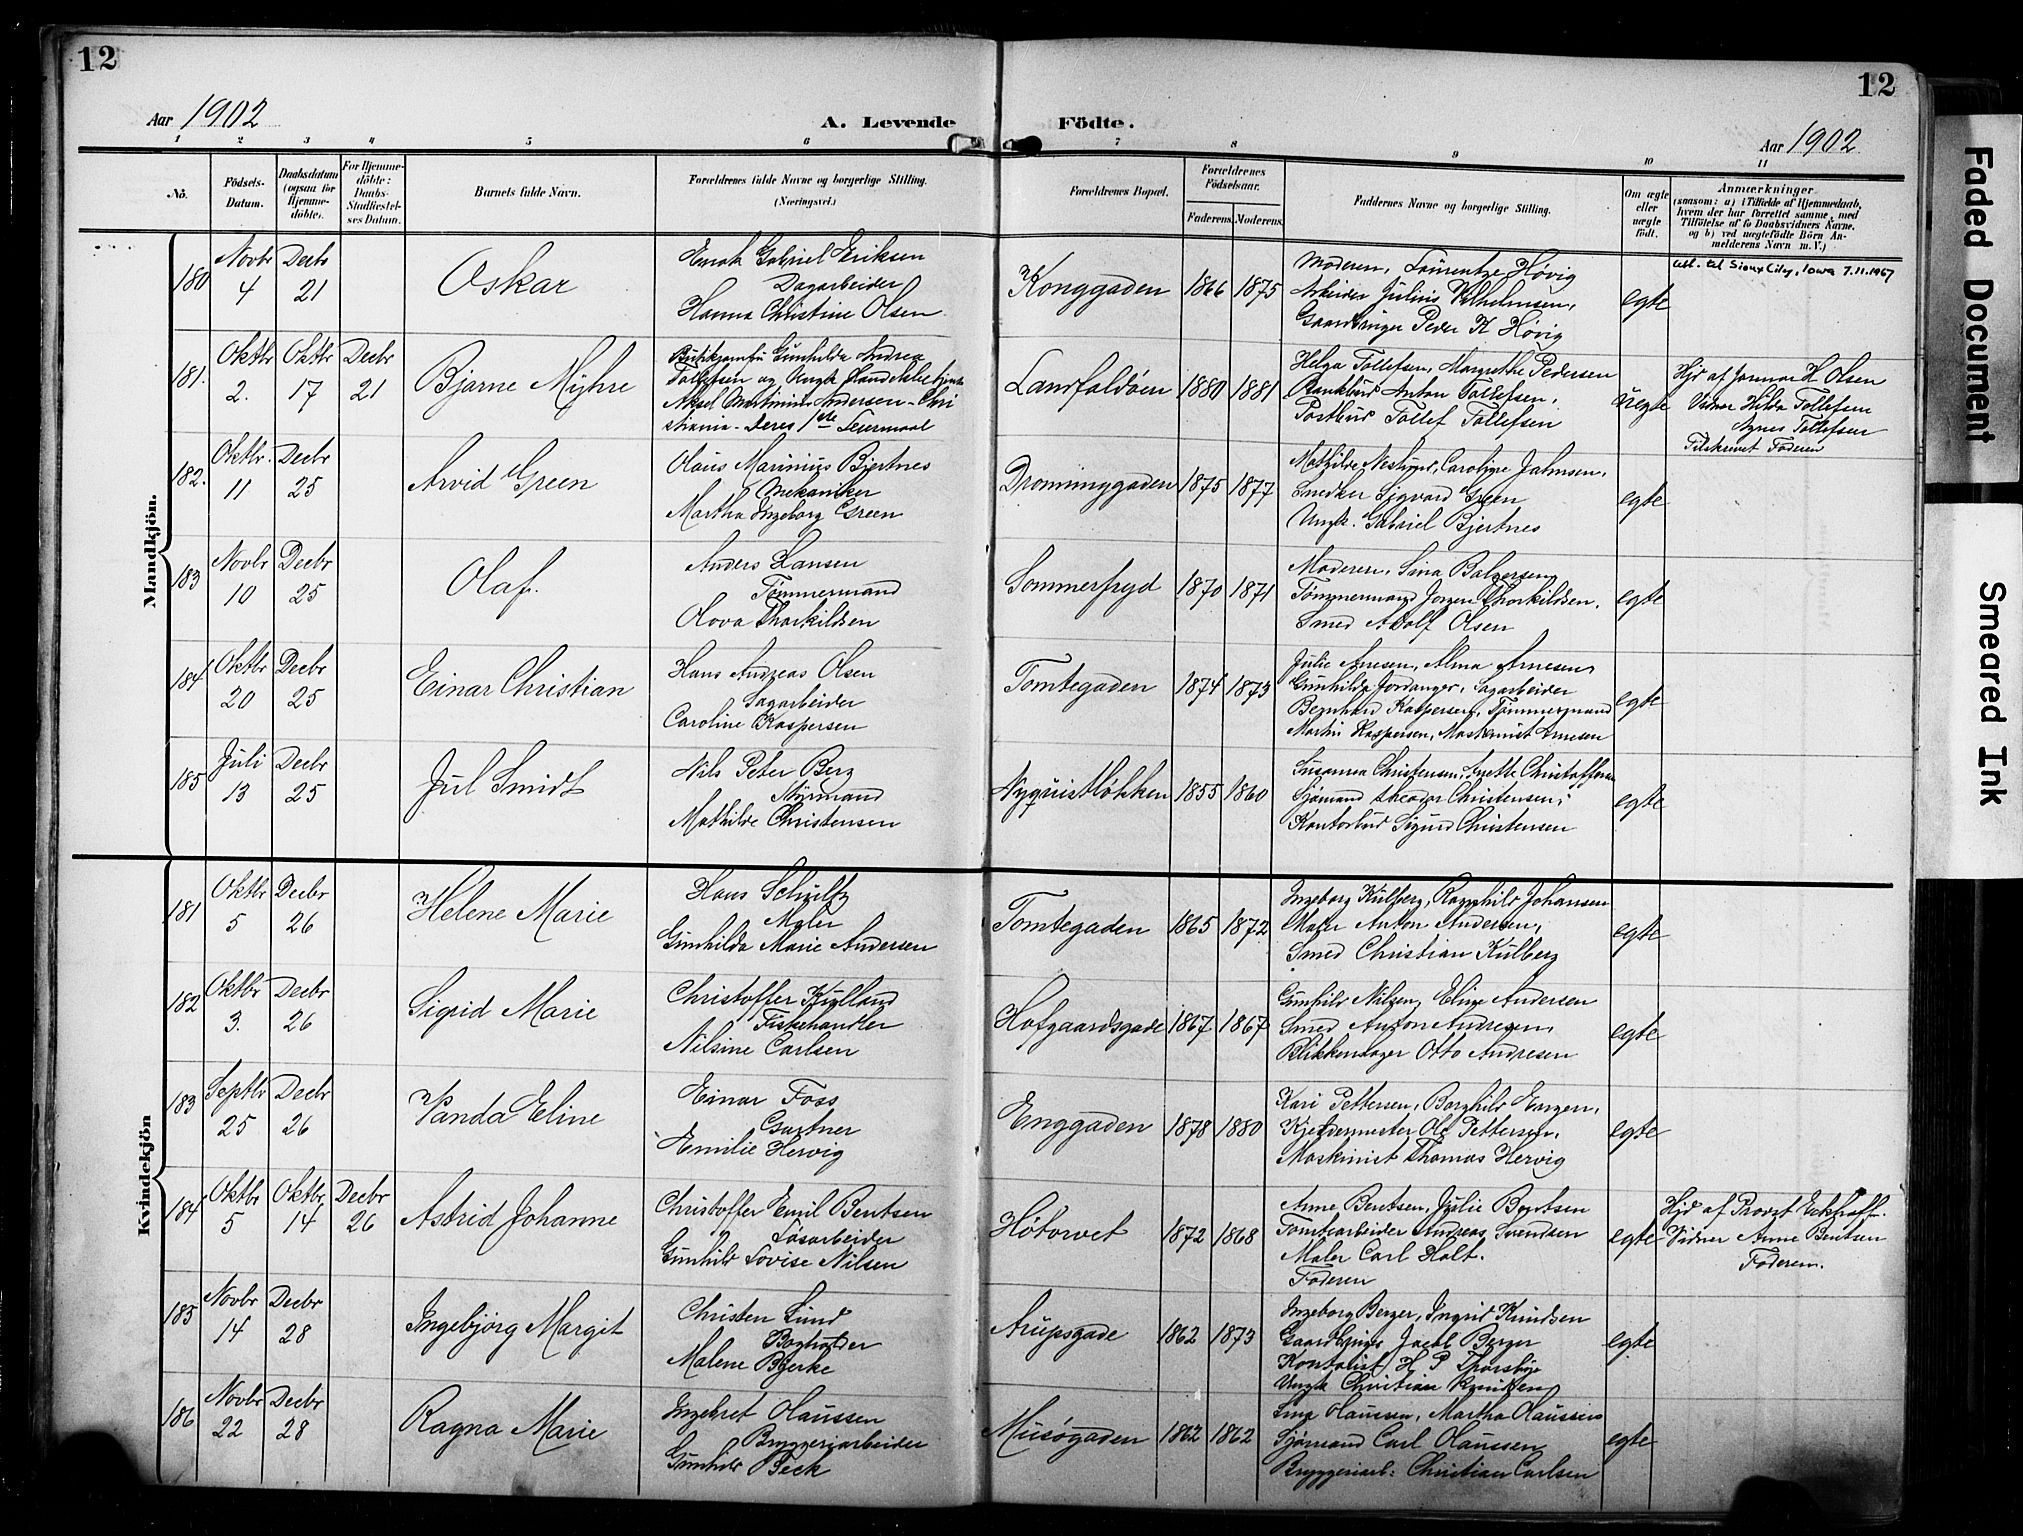 12
12
Aar 1902
A. Levende Födte.
Aar 1902
1 2 3 4 5 6 7 8 9 10 11
No.
Födsels-Datum.
Daabsdatum (ogsaa for Hjemme-döbte).
For Hjemme-döbte: Daabs-Stadfæstel-ses Datum.
Barnets fulde Navn.
Forældrenes fulde Navne og borgerlige Stilling. (Næringsvei.)
Forældrenes Bopæl.
Forældrenes Födselsaar.
Faderens.
Moderens.
Faddernes Navne og borgerlige Stilling.
Om ægte eller uægte födt.
Anmærkninger
(saasom: a) i Tilfælde af Hjemmedaab, hvem der har forrettet samme, med Tilföielse af to Daabsvidners Navne, og b) ved uægtefödte Börn An-melderens Navn m. V.)
Mandkjön.
180
Novbr 4
Decbr 21
Oskar
Enok Gabriel Eriksen
Dagarbeider
Hanna Christine Olsen
Konggaden
1866
1875
Moderen, Laurentze Høvig
Arbeider Julius Vilhelmsen,
Gaardbruger Peder K Høvig
egte
att. til Sioux City, Iowa 7.11.1967
181.
Oktbr 2.
Oktbr 17
Decbr 21
Bjarne Myhre
Gunhilda Andrea
Tollefsen og Ungk
Aksel Martinius Andersen - Chri
stiania - Deres 1ste Leiermaal
Landfaldøen
1880
1881
Helga Tollefsen, Margrethe Pedersen
Bankbud Anton Tollefsen,
Postbud Tollef Tollefsen
uegte
Hjd af Jormor H Olsen
Vidner Hilda Tollefsen
Agnes Tollefsen
Tilskrevet Faderen
182.
Oktbr. 11
Decbr 25
Arvid Green
Olaus Marinius Bjertnes
Mekaniker
Martha Ingeborg Green
Dronninggaden
1875
1877
Mathilde Caroline Jahnsen,
Snedker Sigvard Green
Ungk. Gabriel Bjertnes
egte
183
Novbr 10
Decbr 25
Olaf.
Anders Hansen
Tømmermand
Olova Thorkildsen
Sommerfryd
1870
1871
Moderen, Sina Balzersen
Tømmermand Jorgen Thorkildsen,
Smed Adolf Olsen
egte
184
Oktbr 20
Decbr 25
Einar Christian
Hans Andreas Olsen
Sagarbeider
Caroline Kaspersen
Tomtegaden
1874
1873
Julie Arnesen, Alma Arnesen,
Gunhilda Jordanger, Sagarbeider
Bernhard Kaspersen, Tømmermand
Martin Kaspersen, Maskinist Arnesen
egte
185
Juli 13
Decbr 25
Jul Smidt
Nils Peter Berg
Murmand
Mathilde Christensen
Nyquistløkken
1855
1860
Susanna Christensen, Anette Christoffersen
Sjømand Theodor Christensen,
Kontorbud Sigurd Christensen
egte
Kvindekjön
181
Oktbr 5
Decbr 26
Helene Marie
Hans Schultz
Maler
Gunhilda Marie Andersen
Tomtegaden
1865
1872
Ingeborg Kulberg, Ragnhild Johansen
Maler Anton Andersen,
Smed Christian Kulberg
egte
182
Oktbr 3.
Decbr 26
Sigrid Marie
Christoffer Kylland
Fiskehandler
Nilsine Carlsen
Hofgaardsgade
1867
1867
Gunhild Nilsen, Eline Andersen
Smed Anton Andresen,
Blikkenslager Otto Andresen
egte
183
Septbr 25
Decbr 26
Vanda Eline
Einar Foss
Gartner
Emilie Hervig
Enggaden
1878
1880
Kari Pettersen, Borghild Larsen,
Kjeldermester Ole Pettersen,
Maskinist Thomas Hervig
egte
184
Oktbr 5
Oktbr 14
Decbr 26
Astrid Johanne
Christoffer Emil Bentsen
Løsarbeider
Gunhild Lovise Nilsen
Høtorvet
1872
1868
Anne Bentsen, Julie Bentsen
Tomtearbeider Andreas Svendsen
Maler Carl Holt.
Faderen
egte
Hjd af Provst Eckhoff.
Vidner Anne Bentsen
Faderen.
185
Novbr 14
Decbr 28
Ingebjørg Margit
Christen Lund
Bogholder
Malene Bjerke
Arupsgade
1862
1873
Ingeborg Berger, Ingrid Knudsen
Gaardbruger Jacob Berger
Kontorist H P Thorsbye
Ungk Christian Knudsen
egte
186
Novbr 22
Decbr 28
Ragna Marie
Ingebret Olaussen
Bryggeriarbeider
Gunhild Beck
Musøgaden
1862
1862
Lina Olaussen, Martha Olaussen
Sjømand Carl Olaussen
Bryggeriarb: Christian Carlsen
egte
Faded Document
Smeared Ink